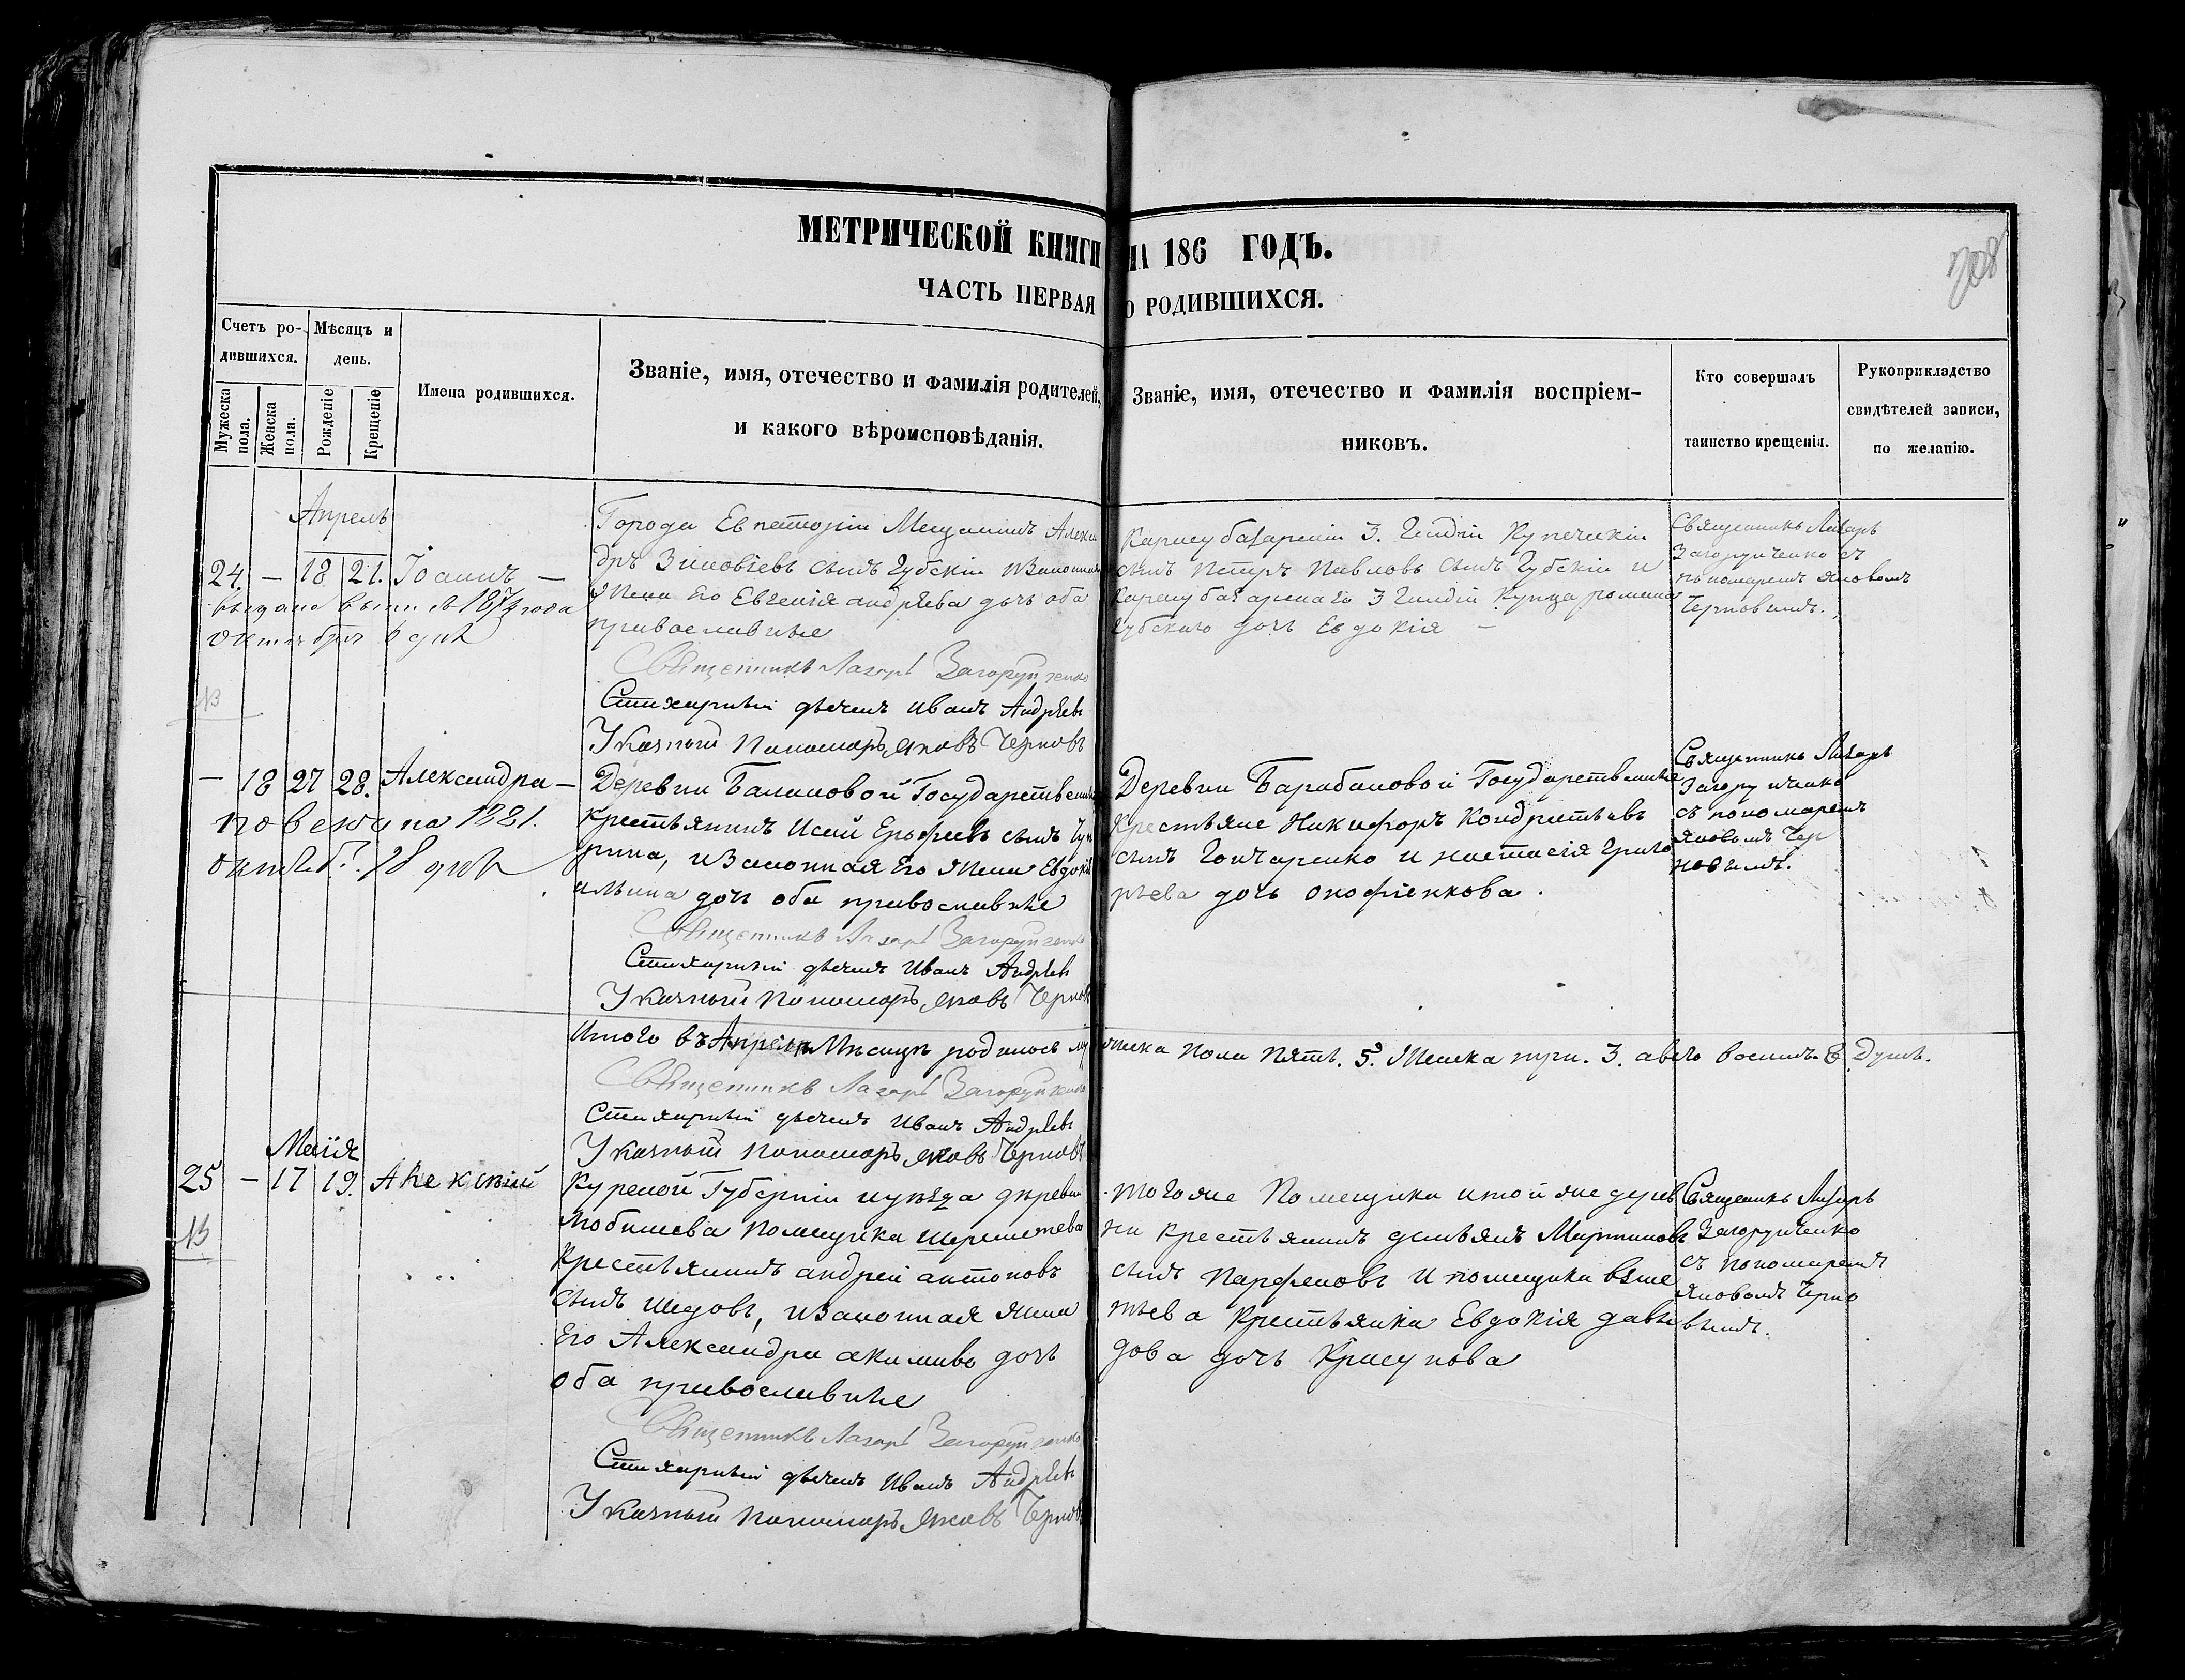 МЕТРИЧЕСКОЙ КНИГИ НА 186 ГОДЪ.
308
ЧАСТЬ ПЕРВАЯ О РОДИВШИХСЯ.
Счетъ ро-
дившихся.
Мужеска пола.
Женска пола.
Мѣсяцъ и
день.
Рожденіе
Крещеніе
Имена родившихся.
Званіе, имя, отечество и фамилія родителей,
и какого вѣроисповѣданія.
Званіе, имя, отечество и фамилія воспріем-
никовъ.
Кто совершалъ
таинство крещенія.
Рукоприкладство
свидѣтелей записи,
по желанію.
Апрель
24. — 18 21. Іоаннъ —
октября 6 дня
Города Евпаторіи Мещанинъ Алексан
дръ Зиновіевъ сынъ Губскій изаконная
жена Его Евгенія андрѣева дочь оба
православные
Священникъ Лазарь Загоруйченко
Стихарный дьячекъ Иванъ Андрѣевъ
Указный Пономарь Яковъ Черновъ
Карасубазарскій 3. Гильдіи Купеческій
сынъ Петръ Павловъ сынъ Губскій и
Карасубазарскаго 3 Гильдіи Купца романа
Губскаго дочь Евдокія —
Священникъ Лазарь
Загоруйченко съ
пономаремъ Яковомъ
Черновымъ.
— 18 27 28. Александра —
1881.
октяб. 28 дня
Деревни Балановой Государственный
Крестьянинъ Исай Ерофеевъ сынъ
изаконная Его жена Евдокія
ильина дочь оба православные
Священникъ Лазарь Загоруйченко
Стихарный дьячекъ Иванъ Андрѣевъ
Указный Пономарь Яковъ Черновъ
Деревни Барабановой Государственные
Крестьяне Никифоръ Кондратьевъ
сынъ Гончаренко и настасія Григо
рьева дочь онофіенкова.
Священникъ Лазарь
Загоруйченко
съ пономаремъ
Яковомъ Чер
новымъ.
Итого въ Апрелѣ Месяцѣ родилось мужеска пола пять. 5. Женска три. 3. авсего восемь. 8. Душъ.
Священникъ Лазарь Загоруйченко
Стихарный дьячекъ Иванъ Андрѣевъ
Указный Пономарь Яковъ Черновъ
Маія
25 — 17 19. Алексѣй
Курской Губерніи иуѣзда деревни
Любишева Помещика Шереметева
Крестьянинъ андрей антоновъ
сынъ Шедовъ, изаконная жена
Его Александра акимова дочь
оба православные
Священникъ Лазарь Загоруйченко
Стихарный дьячекъ Иванъ Андрѣевъ
Указный Пономарь Яковъ Черновъ
тогоже Помещика итойже дерев
ни Крестьянинъ демьянъ Мартиновъ
сынъ Парфеновъ и помещика
Крестьянка Евдокія давы
дова дочь Красунова
Священникъ Лазарь
Загоруйченко
съ пономаремъ
Яковомъ Черно
вымъ.